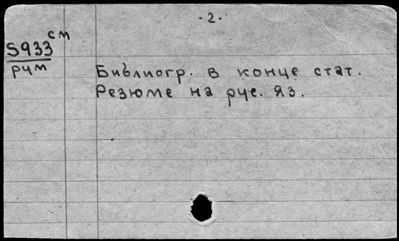 - 2. -
см
S933
рум
Библиогр. в конце стат.
Резюме на рус. яз.